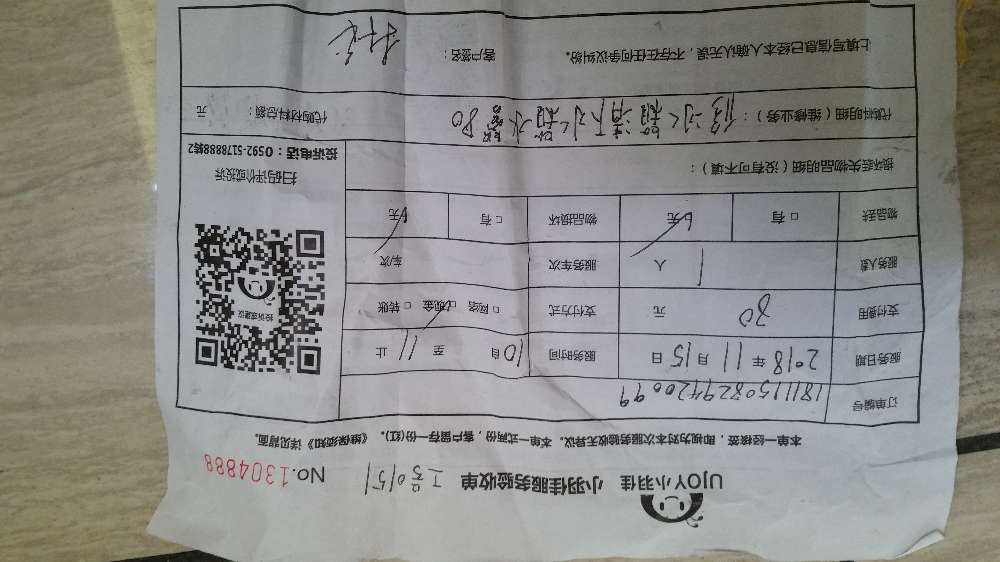 UJOY小羽佳 小羽佳服务验收单 工号0151 No.1304888
本单一经核签，即视为对本次服务验收无异议。本单一式两份，客户留存一份(红)。《维保须知》详见背面。
订单编号 1811150829420099
服务日期 2018 年 11 月 15 日 服务时间 10 自 至 11 止
支付费用 80 元 支付方式 □网络 □现金 □转账
服务人数 1 人 服务车次 车次
物品丢失 □有 □无 物品损坏 □有 □无
损坏丢失物品明细（没有可不填）：
代料明细（维修业务）： 80
代购材料总额： 元
上填写信息已经本人确认无误，不存在任何争议纠纷。 客户签名：
投诉或建议
扫码评价或投诉
投诉电话：0592-5178888转2